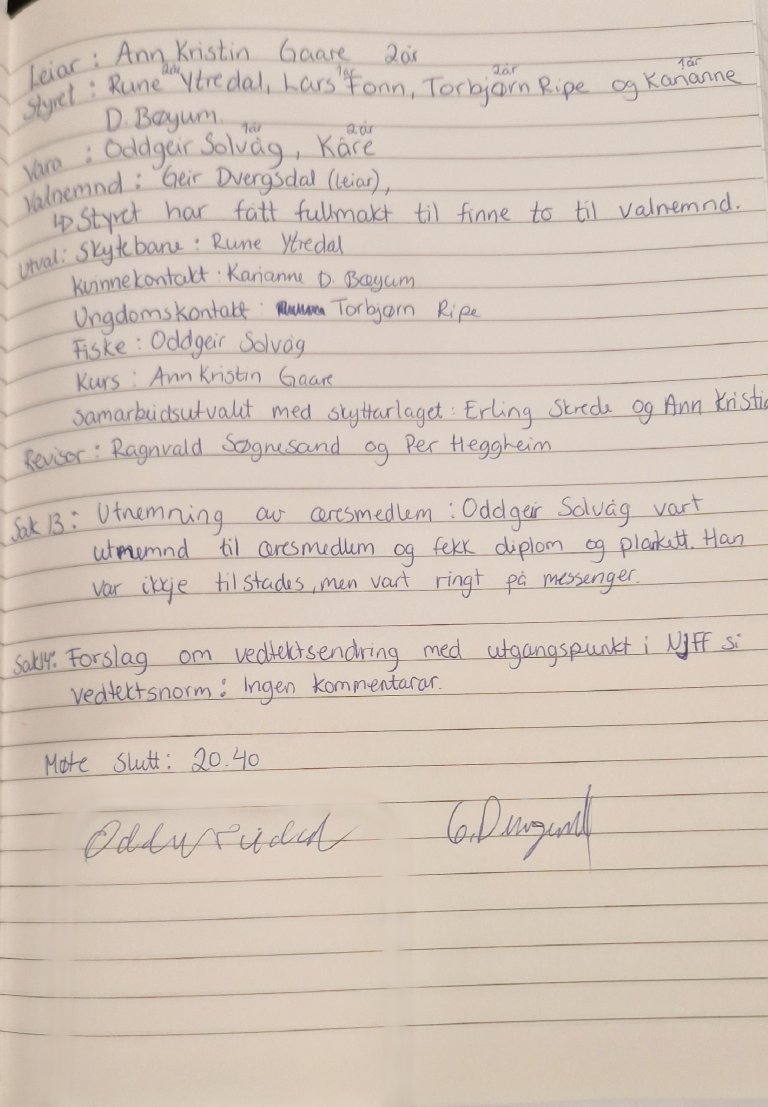 Leiar : Ann Kristin Gaare 2år
2år 1år 2år 1år
Styret : Rune Ytredal, Lars Fonn, Torbjørn Ripe og Karianne
D. Bøyum.
1år 2år
Vara : Oddgeir Solvåg, Kåre
Valnemnd : Geir Dvergsdal (leiar),
↳ Styret har fått fullmakt til finne to til valnemnd.
Utval: Skytebane : Rune Ytredal
Kvinnekontakt : Karianne D. Bøyum
Ungdomskontakt : Torbjørn Ripe
Fiske : Oddgeir Solvåg
Kurs : Ann Kristin Gaare
Samarbeidsutvalet med skyttarlaget : Erling Strede og Ann Kristin
Revisor : Ragnvald Søgnesand og Per Heggheim
Sak 13 : Utnemning av æresmedlem : Oddgeir Solvåg vart
utnemnd til æresmedlem og fekk diplom og plakett. Han
var ikkje tilstades, men vart ringt på messenger.
Sak 14: Forslag om vedtektsendring med utgangspunkt i NJFF si
vedtektsnorm : Ingen kommentarar.
Møte slutt : 20.40